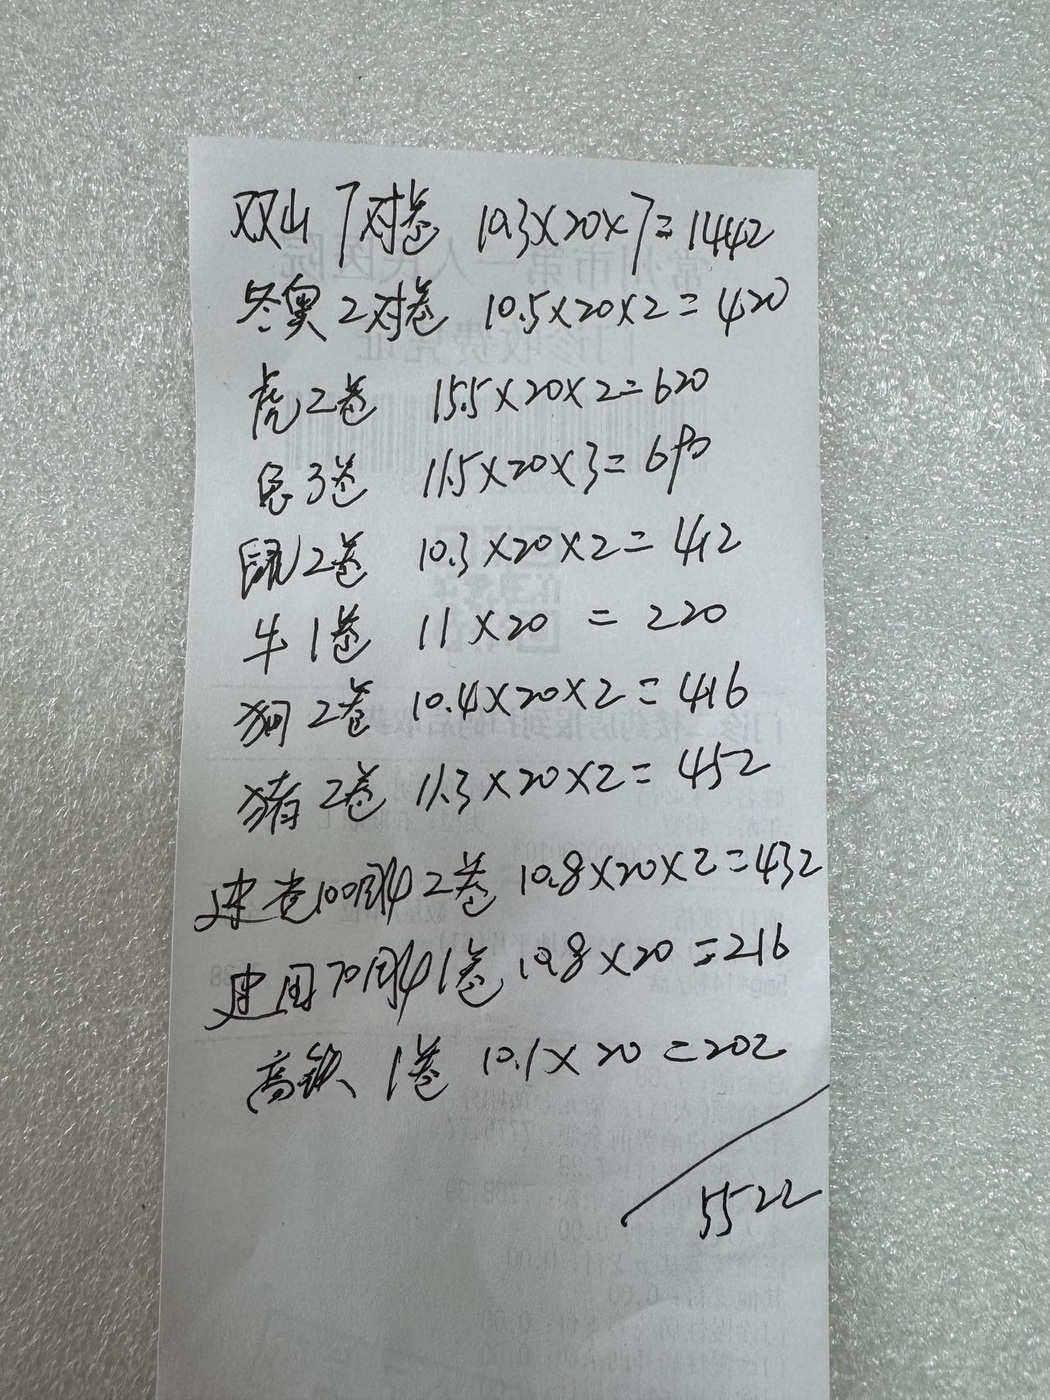 双山7对卷 10.3×20×7=1442
冬奥2对卷 10.5×20×2=420
虎2卷 15.5×20×2=620
3卷 11.5×20×3=690
鼠2卷 10.3×20×2=412
牛1卷 11×20 =220
狗2卷 10.4×20×2=416
猪2卷 11.3×20×2=452
建党100周年2卷 10.8×20×2=432
建国70周年1卷 10.8×20=216
高铁 1卷 10.1×20=202
5522